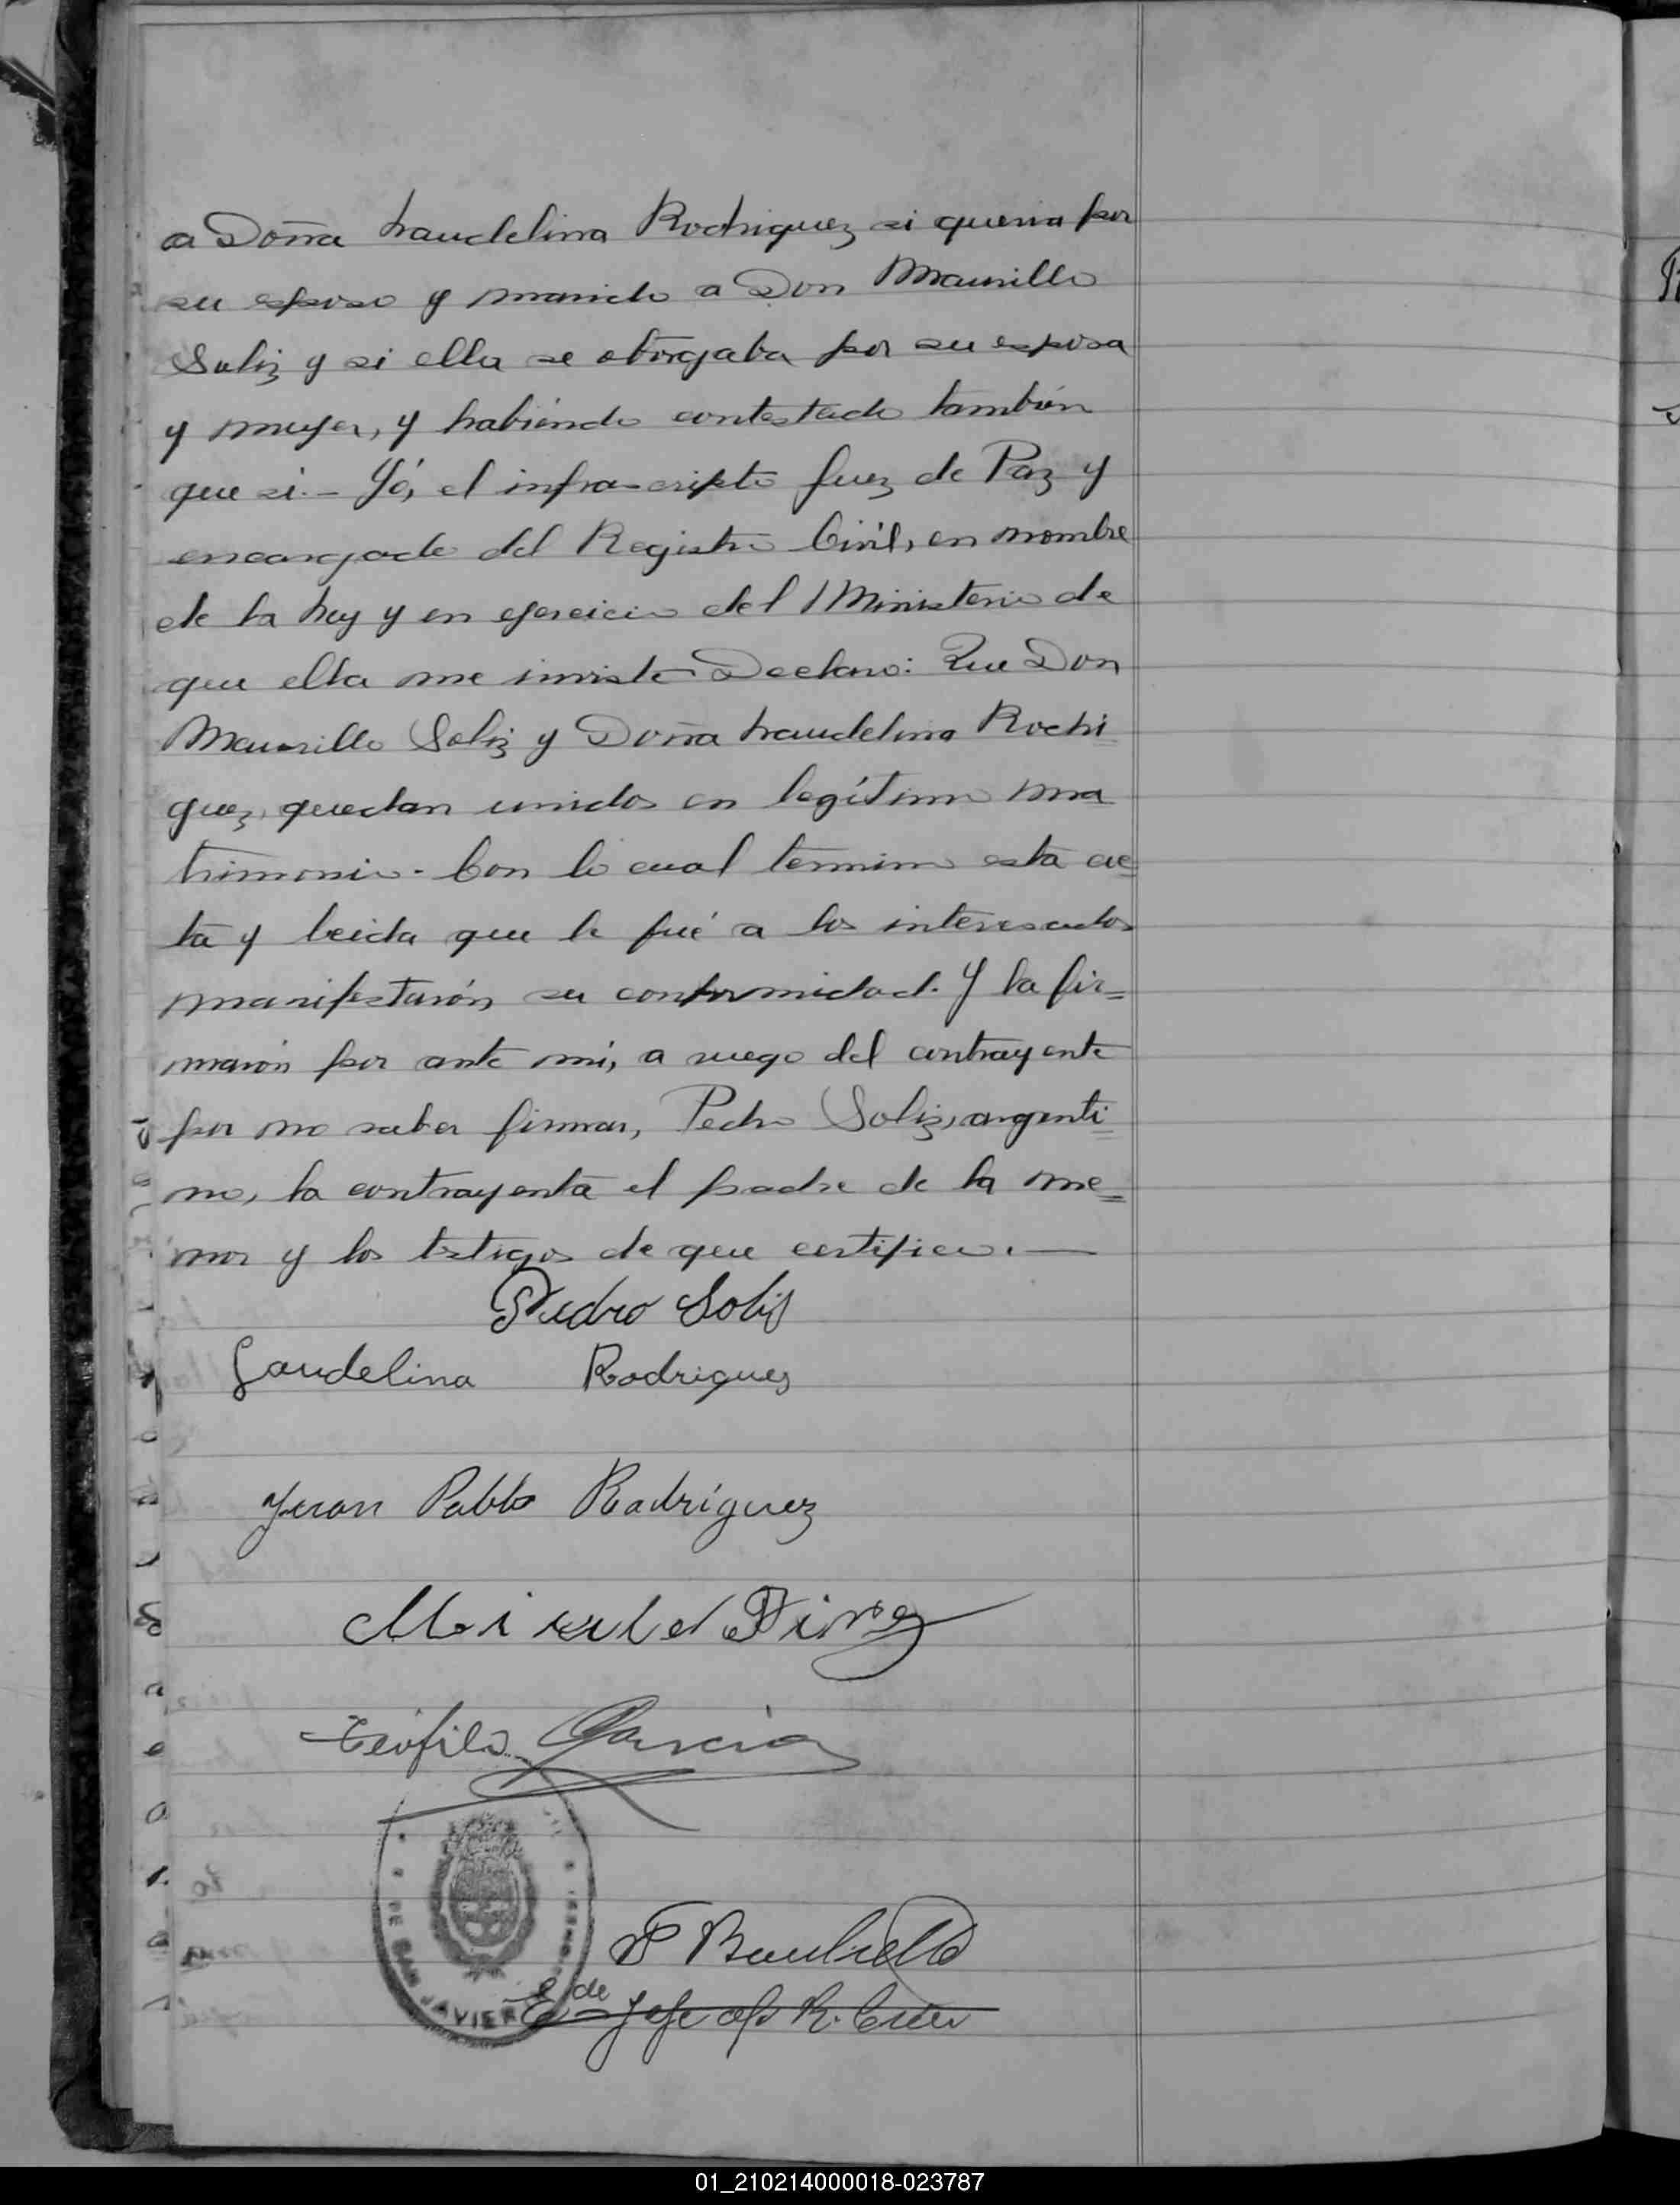 a Doña Laudelina Rodriguez si queria por
su esposo y marido a Don Maurillo
Soliz y si ella se otorgaba por su esposa
y mujer, y habiéndo contestado también
que si.- Yó, el infrascripto Juez de Paz y
encargado del Registro Civil, en nombre
de la Ley y en ejercicio del Ministerio de
que ella me inviste Declaro: Que Don
Maurillo Soliz y Doña Laudelina Rodri
guez, quedan unidos en legítimo ma
trimonio. Con lo cual termino esta ac
ta y leida que le fué a los interesados
manifestarón su conformidad. Y la fir=
marón por ante mi, a ruego del contrayente
por no saber firmar, Pedro Soliz, argenti
no, la contrayenta el padre de la me=
nor y los testigos de que certifico.—
Pedro Solis
Laudelina Rodrigues
Juan Pablo Rodríguez
Teófilo Garcia
DE SAN JAVIER
E de
Jefe del R. Civil
01_210214000018-023787